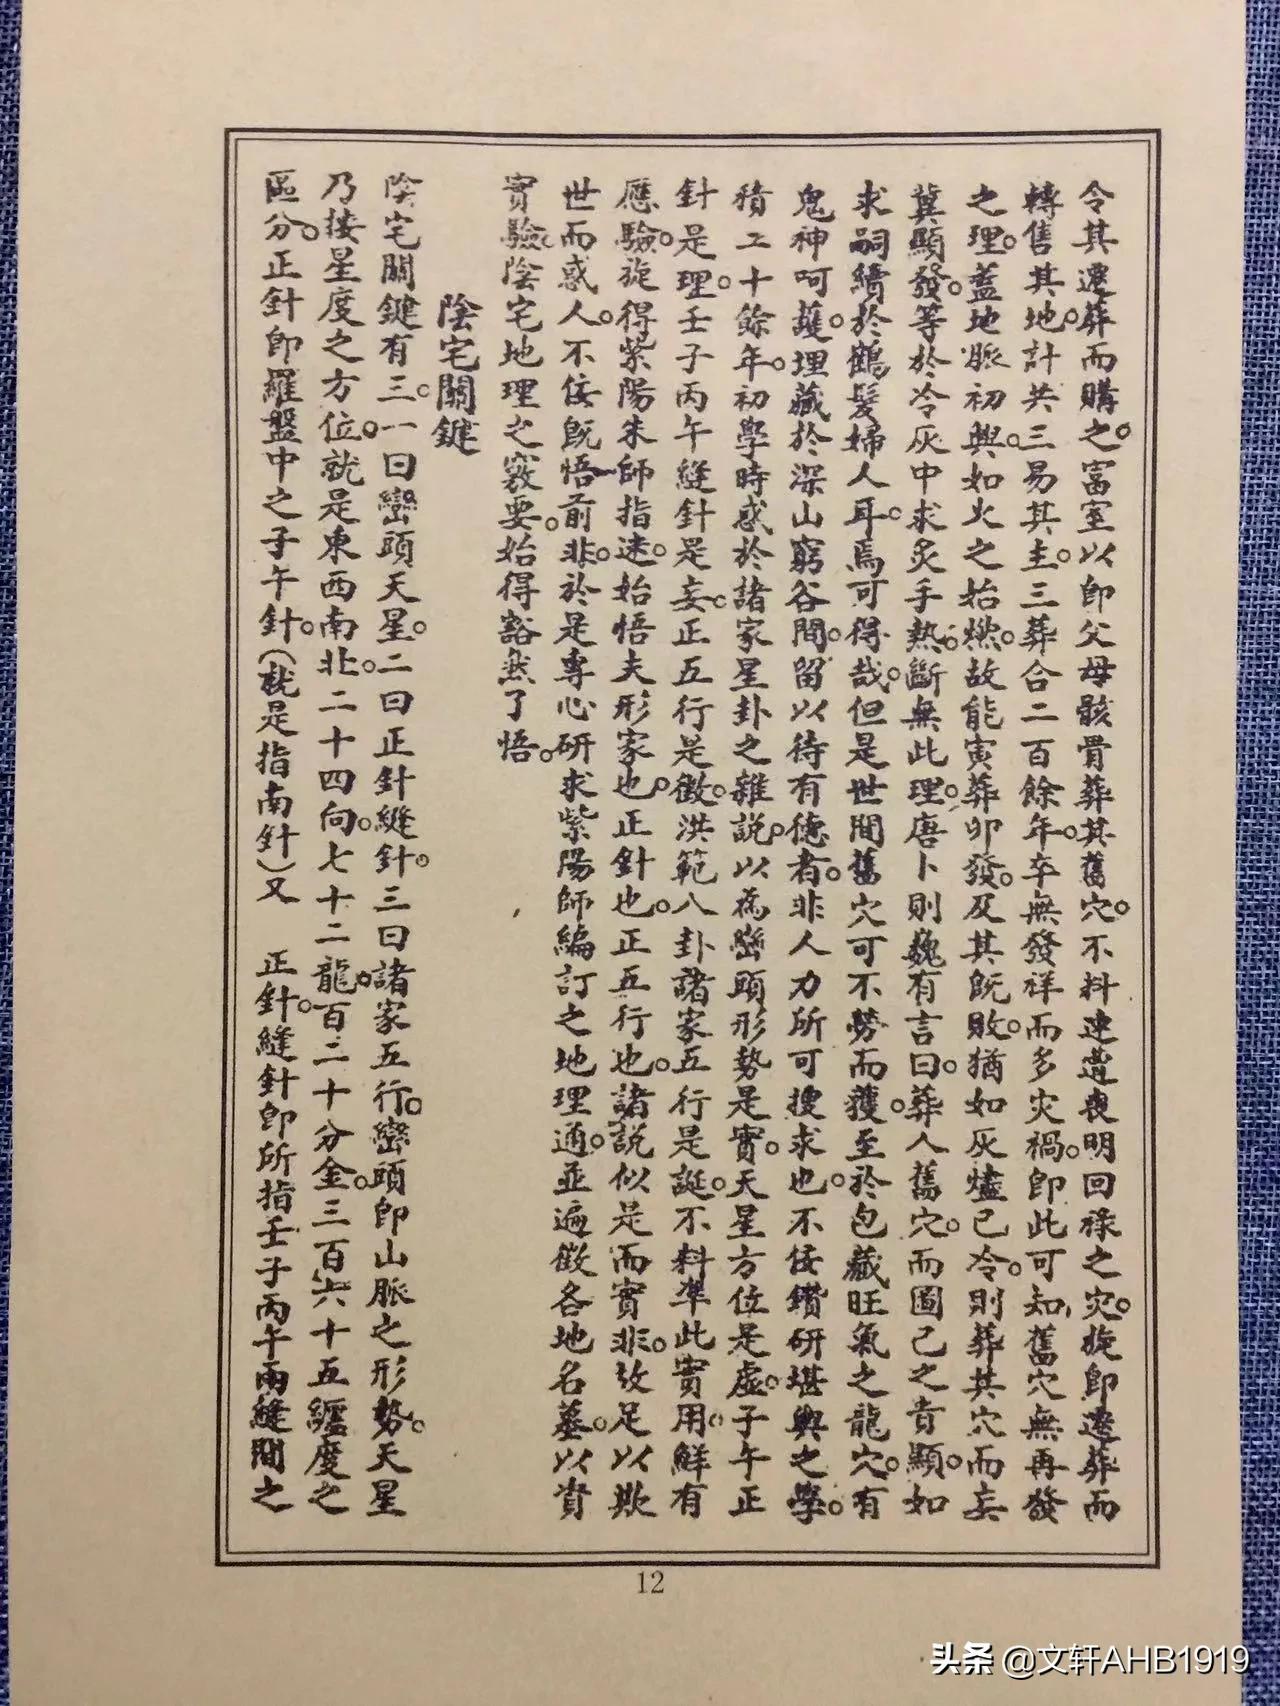 令其遷葬而購之。富室以即父母骸骨葬其舊穴。不料連遭喪明回祿之灾。旋即遷葬而
轉售其地。計共三易其主。三葬合二百餘年。卒無發祥而多灾禍。即此可知。舊穴無再發
之理。蓋地脈初興。如火之始燃。故能寅葬卯發。及其既敗。猶如灰燼已冷。則葬其穴而妄
冀顯發。等於冷灰中求炙手熱。斷無此理。唐卜則巍有言曰。葬人舊穴。而圖己之貴顯。如
求嗣續於鶴髮婦人耳。焉可得哉。但是世間舊穴可不勞而獲。至於包藏旺氣之龍穴。有
鬼神呵護。埋藏於深山窮谷間。留以待有德者。非人力所可搜求也。不佞鑽研堪輿之學。
積二十餘年。初學時惑於諸家星卦之雜說。以為巒頭形勢是實。天星方位是虛。子午正
針是理。壬子丙午縫針是妄。正五行是徵。洪範八卦諸家五行是誕。不料準此實用。鮮有
應驗。旋得紫陽朱師指迷。始悟夫形家也。正針也。正五行也。諸說似是而實非。故足以欺
世而惑人。不佞既悟前非。於是專心研求紫陽師編訂之地理通。並遍徵各地名墓。以資
實驗。陰宅地理之竅要。始得豁然了悟。
陰宅關鍵
陰宅關鍵有三。一曰巒頭天星。二曰正針縫針。三曰諸家五行。巒頭即山脈之形勢。天星
乃接星度之方位。就是東西南北。二十四向。七十二龍。百二十分金。三百六十五纏度之
區分。正針即羅盤中之子午針。(就是指南針)又 正針。縫針即所指壬子丙午兩縫間之
12
头条 @文轩AHB1919